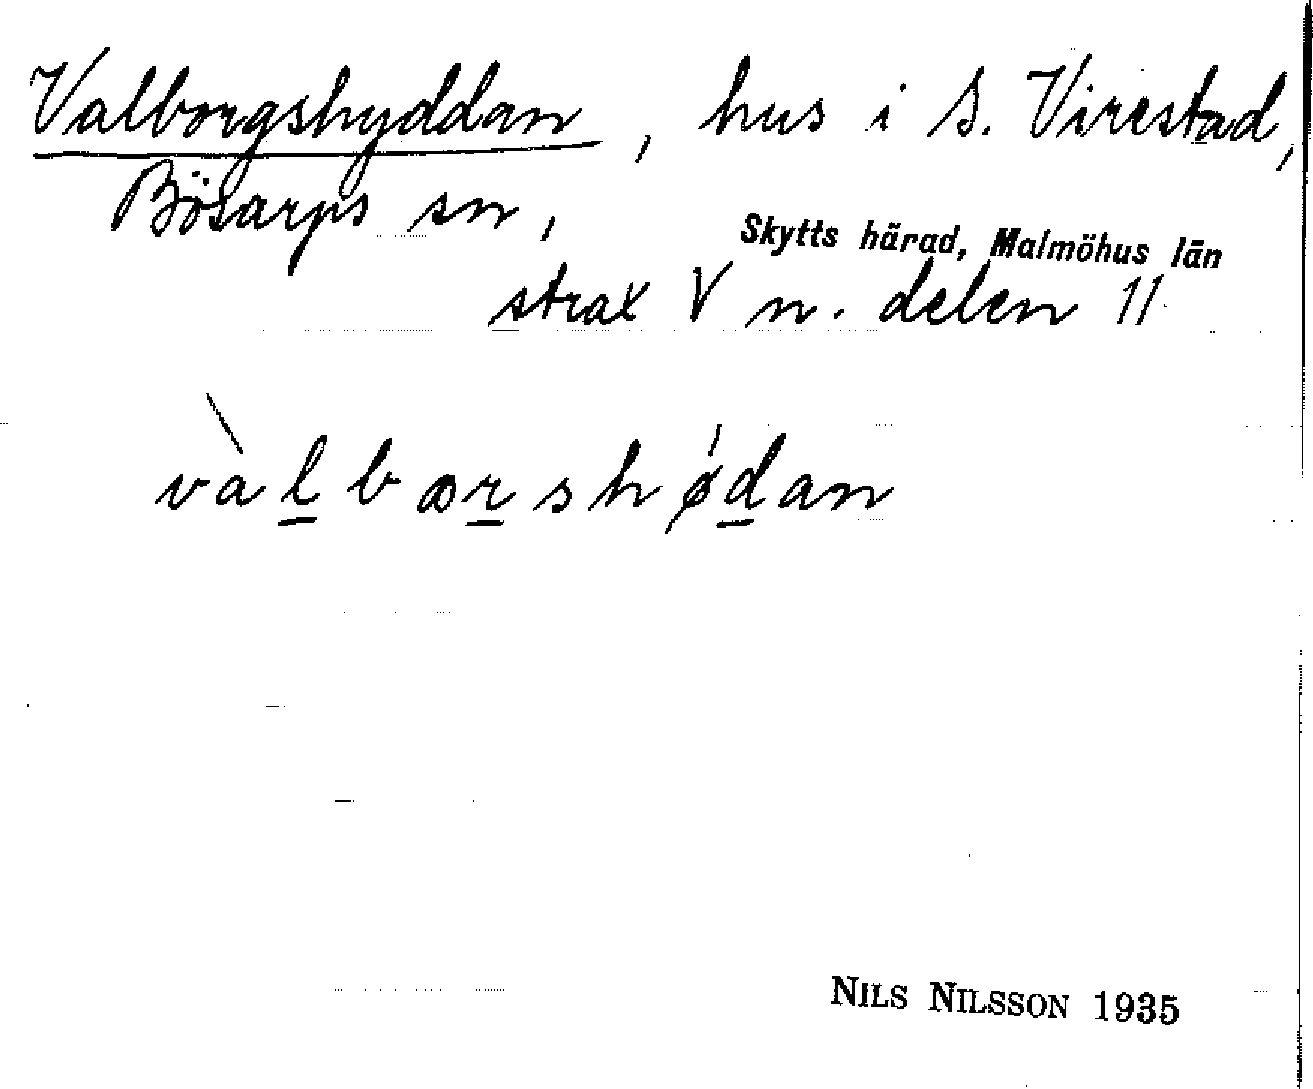 Valborgshyddan, hus i S. Virestad,
Bösarps sn,
Skytts härad, Malmöhus län
strax V n. delen 11
vàl̲bær̲shǿd̲an
NILS NILSSON 1935